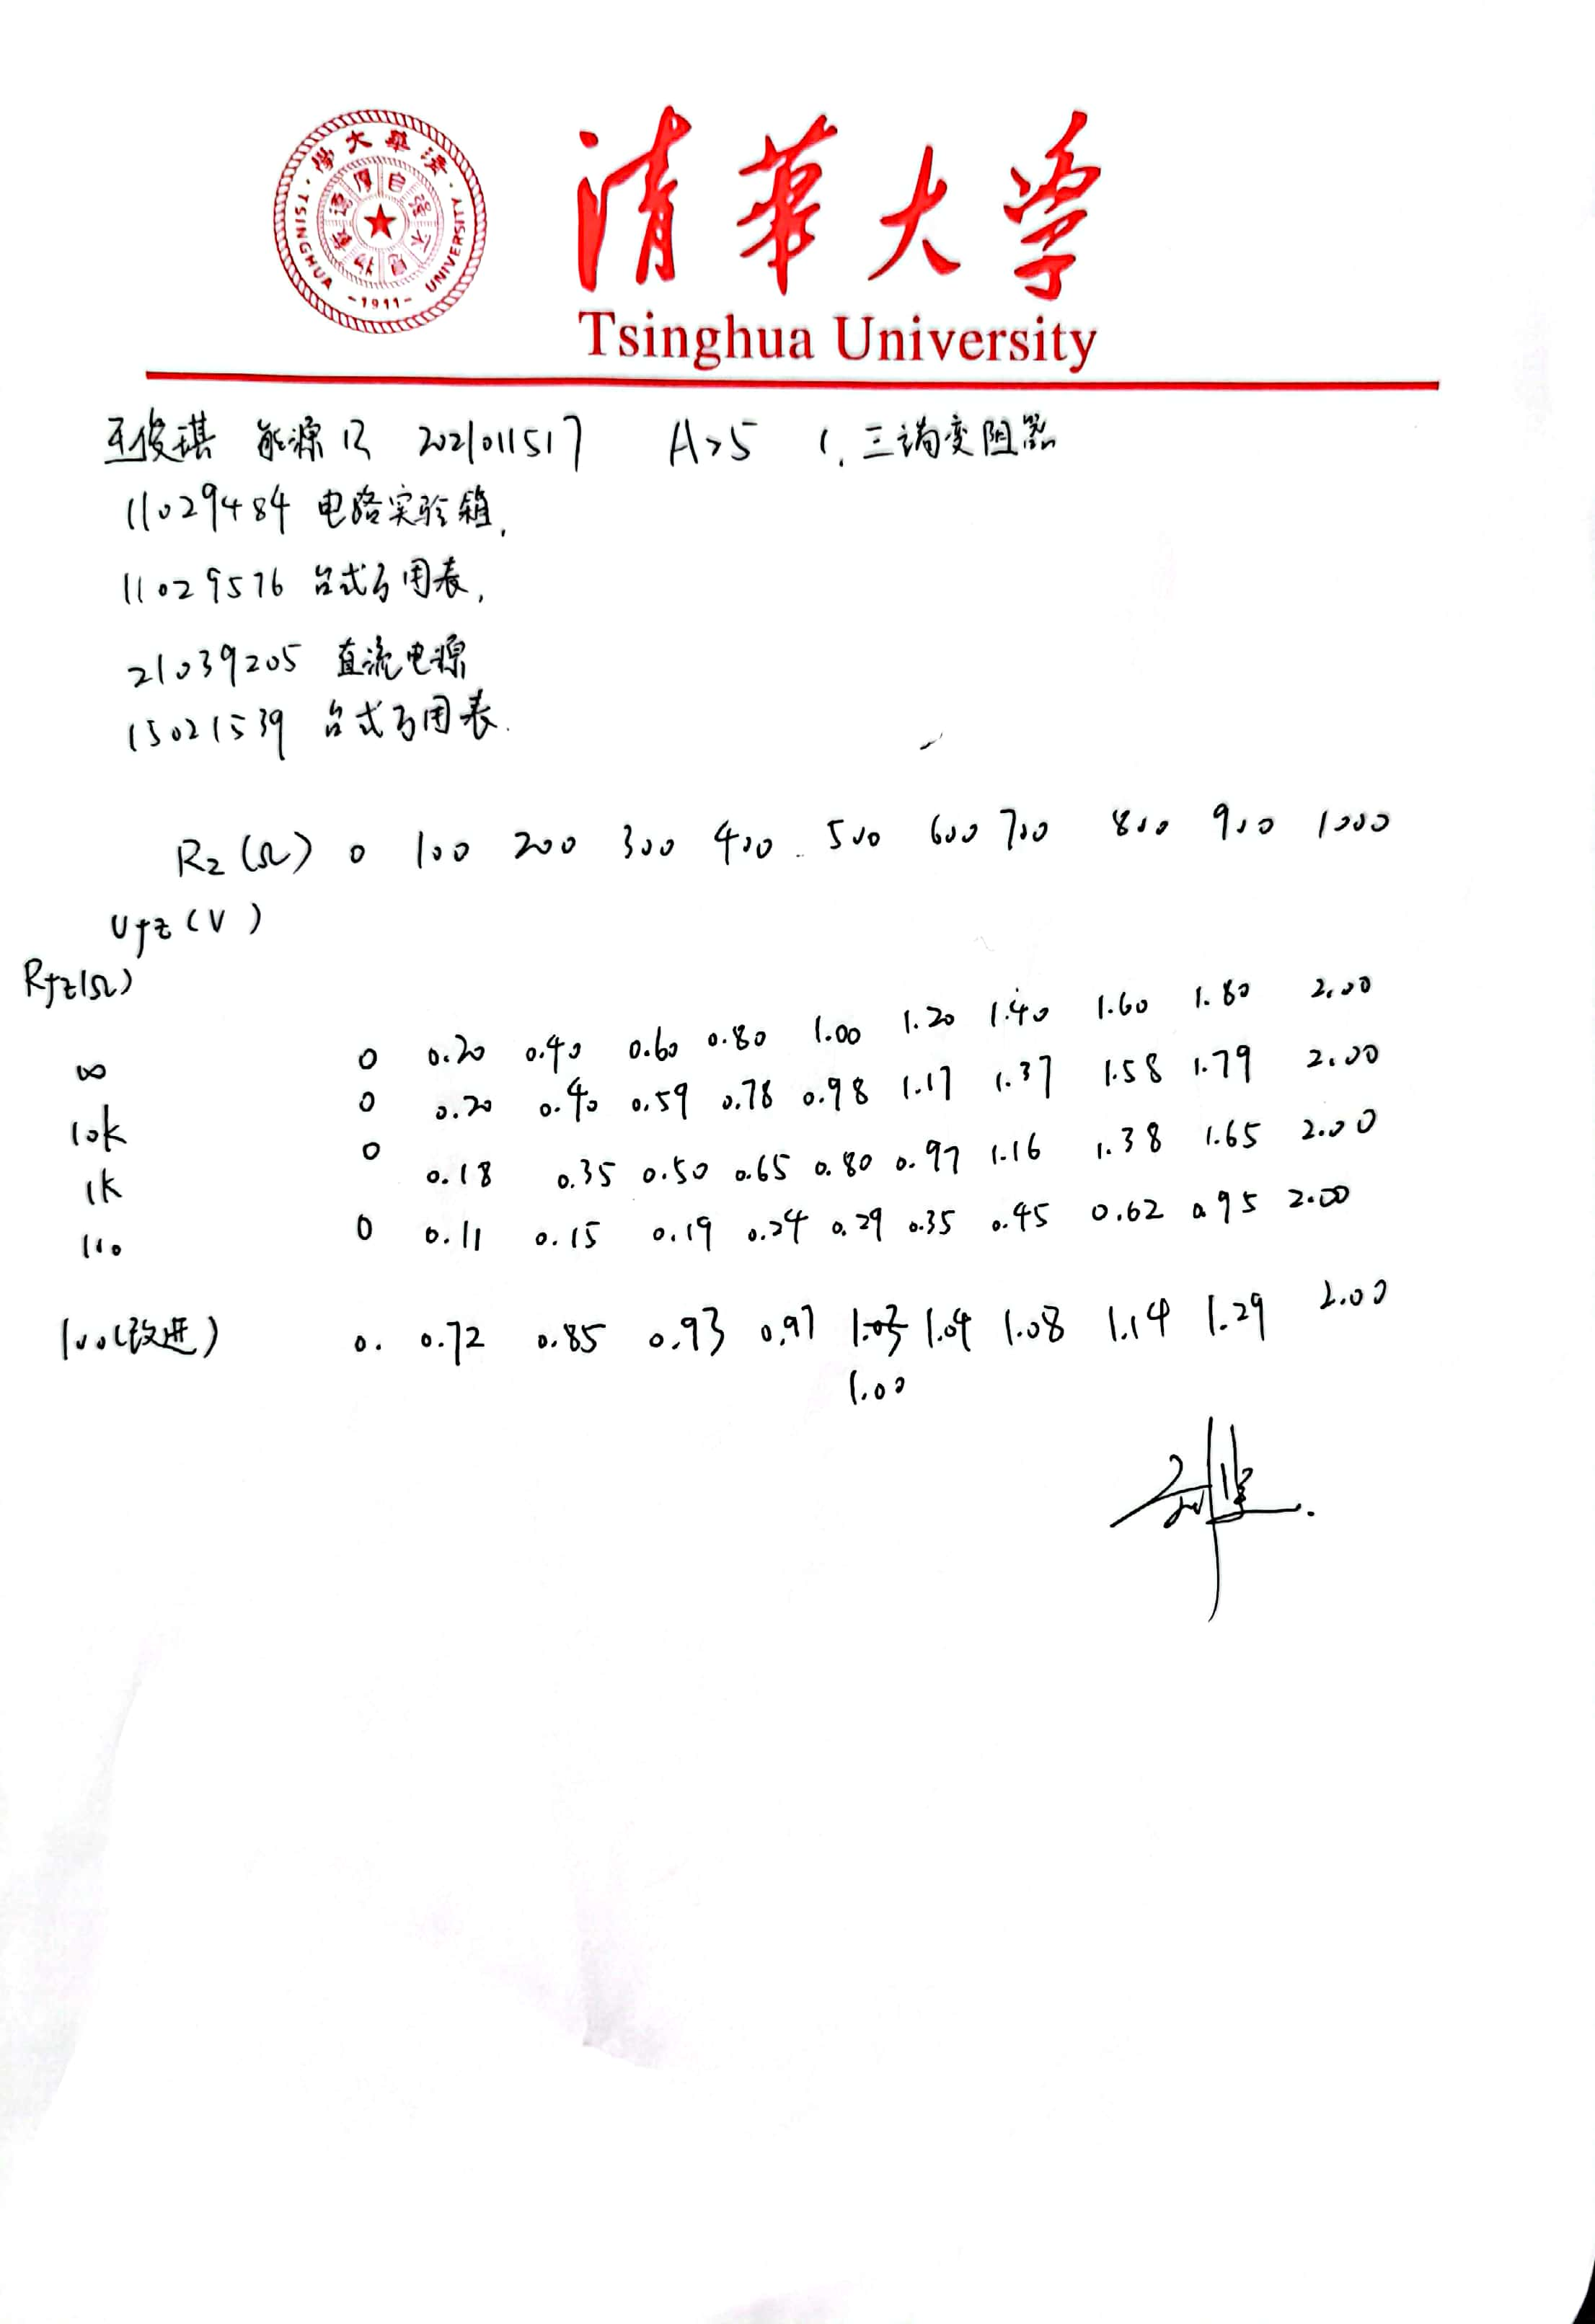 清华大学
Tsinghua University
TSINGHUA UNIVERSITY
-1911-
王俊琪 能源12 2021011517 A25 1. 三端变阻器
11029484 电路实验箱,
11029576 台式万用表,
21039205 直流电源
15021539 台式万用表.
R2(Ω) 0 100 200 300 400 500 600 700 800 900 1000
Ufz(V)
Rfz(Ω)
∞ 0 0.20 0.40 0.60 0.80 1.00 1.20 1.40 1.60 1.80 2.00
10k 0 0.20 0.40 0.59 0.78 0.98 1.17 1.37 1.58 1.79 2.00
1k 0 0.18 0.35 0.50 0.65 0.80 0.97 1.16 1.38 1.65 2.00
100 0 0.11 0.15 0.19 0.24 0.29 0.35 0.45 0.62 0.95 2.00
100(改进) 0. 0.72 0.85 0.93 0.97 1.03 1.04 1.08 1.14 1.29 2.00
1.00